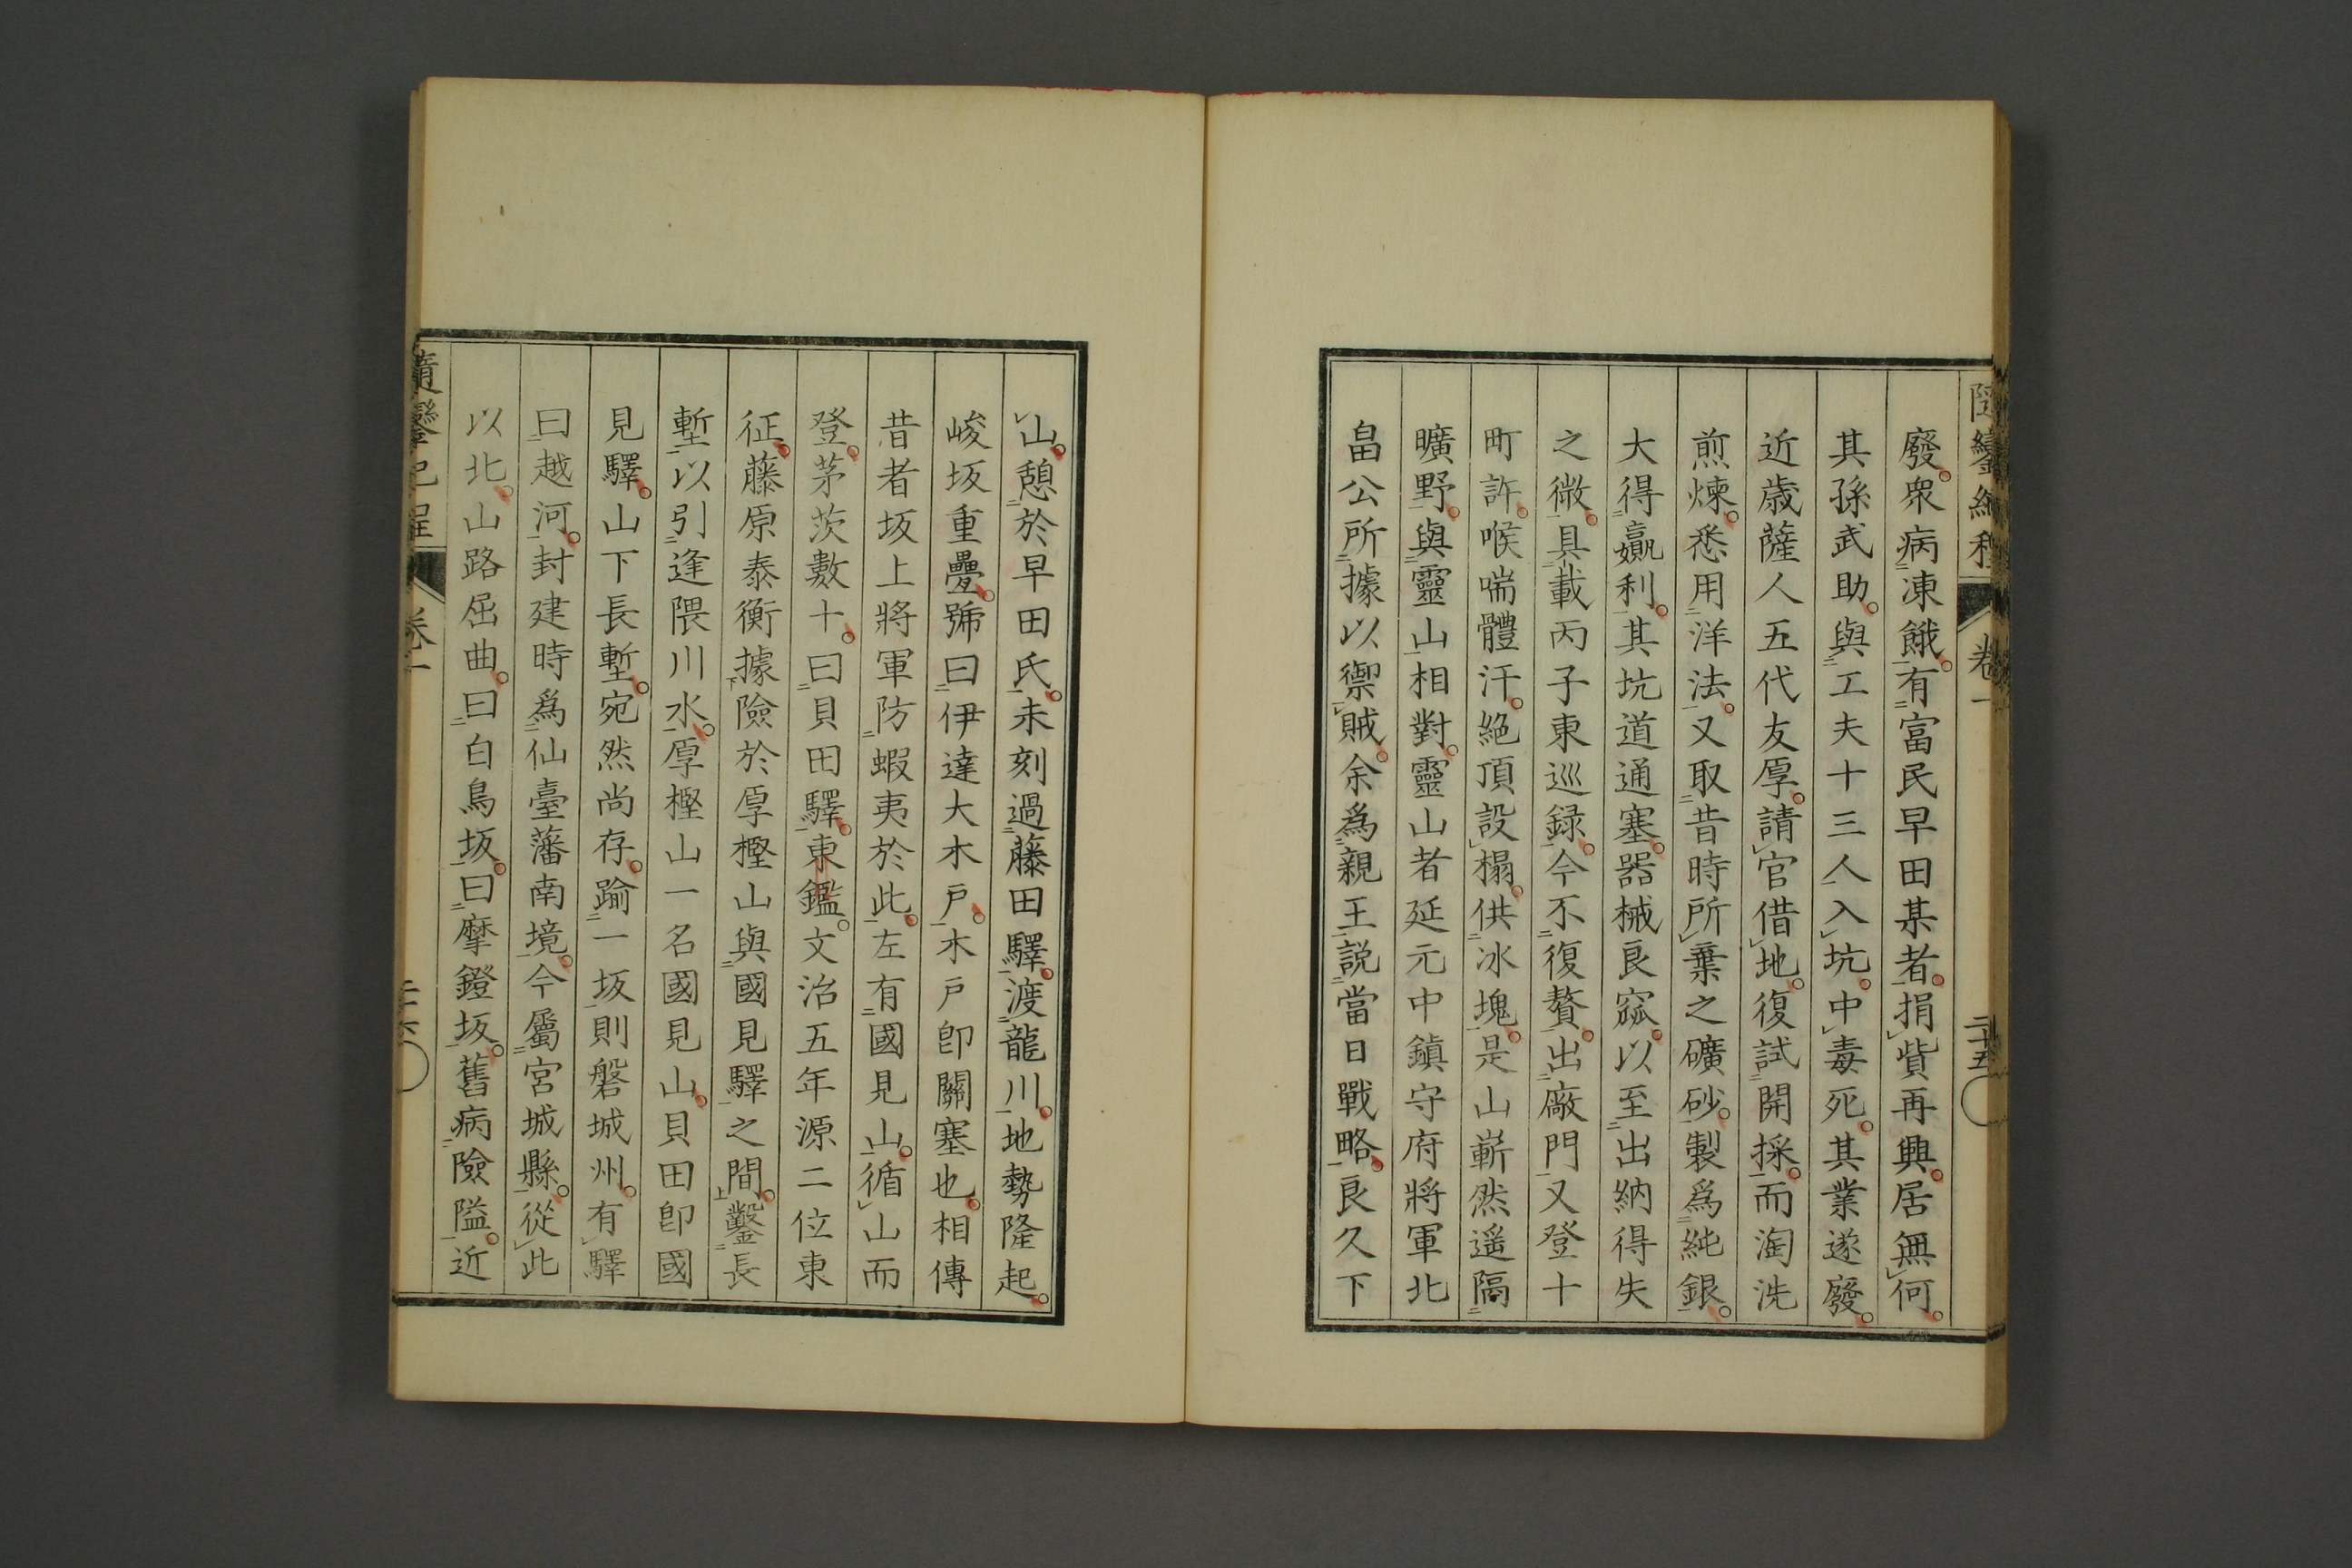 隨鑾紀程 卷一 二十五
廢。衆病凍餓。有富民早田某者。捐貲再興。居無何。
其孫武助。與工夫十三人入坑。中毒死。其業遂廢。
近歳薩人五代友厚。請官借地。復試開採。而淘洗
煎煉。悉用洋法。又取昔時所棄之礦砂。製爲純銀。
大得贏利。其坑道通塞。器械良窳。以至出納得失
之微。具載丙子東巡録。今不復贅。出廠門又登十
町許。喉喘體汗。絕頂設榻。供冰塊。是山嶄然遥隔
曠野。與靈山相對。靈山者延元中鎮守府將軍北
畠公所據以禦賊。余爲親王説當日戰略。良久下
山。憩於早田氏。未刻過藤田驛。渡龍川。地勢隆起。
峻坂重疊。號曰伊達大木戸。木戸卽關塞也。相傳
昔者坂上將軍防蝦夷於此。左有國見山。循山而
登。茅茨數十。曰貝田驛。東鑑。文治五年源二位東
征。藤原泰衡據險於厚樫山與國見驛之間。鑿長
塹以引逢隈川水。厚樫山一名國見山。貝田卽國
見驛。山下長塹。宛然尚存。踰一坂則磐城州。有驛
曰越河。封建時爲仙臺藩南境。今屬宮城縣。從此
以北。山路屈曲。曰白鳥坂。曰摩鐙坂。舊病險隘。近
隨鑾紀程 卷一 二十六